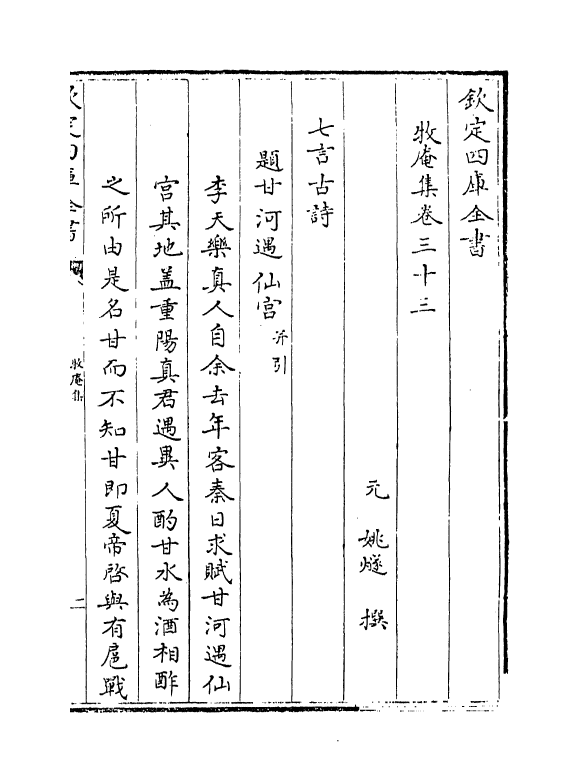 欽定四庫全書
牧庵集卷三十三
元　姚燧　撰
七言古詩
題甘河遇仙宫并引
李天樂真人自余去年客秦日求賦甘河遇仙
宫其地盖重陽真君遇異人酌甘水為酒相酢
之所由是名甘而不知甘即夏帝啓與有扈戰
欽定四庫全書
牧庵集
二